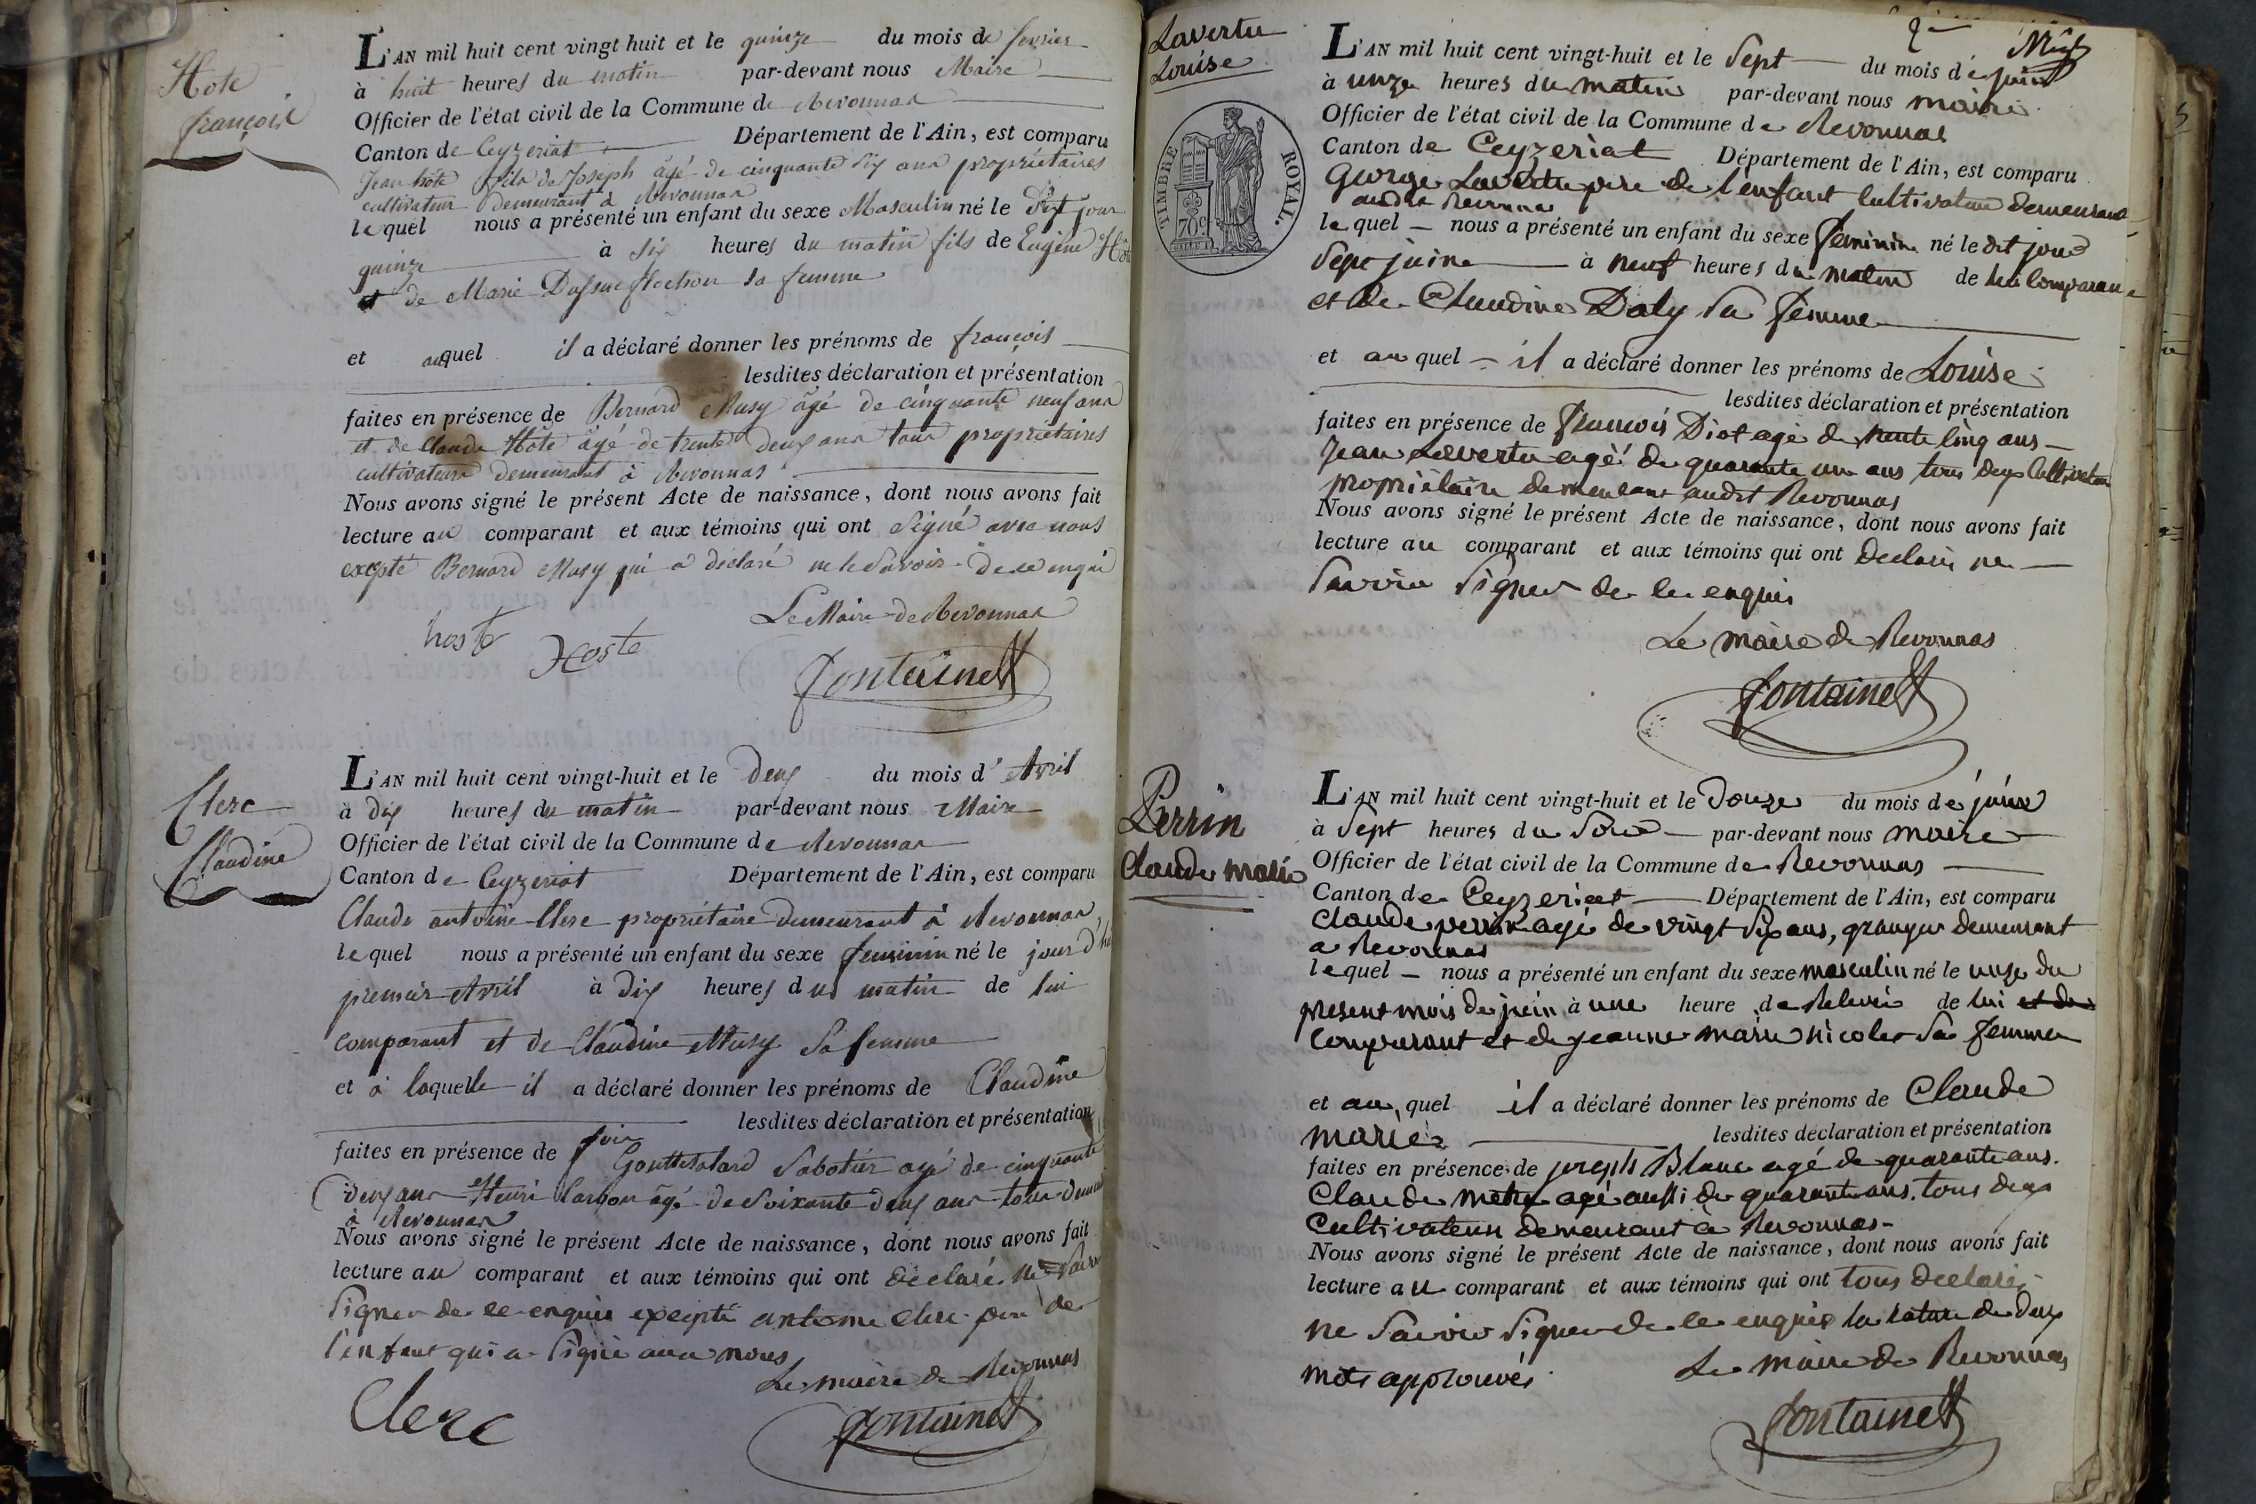 Hote
françois
L'AN mil huit cent vingt huit et le quinze du mois de fevrier
à huit heures du matin par-devant nous Maire
Officier de l'état civil de la Commune de Revonnas
Canton de Ceyzeriat Département de l'Ain, est comparu
Jean hôte fils de Joseph âgé de cinquante six ans propriétaires
cultivateur demeurant à Revonnas
lequel nous a présenté un enfant du sexe Masculin né le dit jour
quinze à six heures du matin fils de Eugène Hôte
et de Marie sa femme
et auquel il a déclaré donner les prénoms de françois
lesdites déclaration et présentation
faites en présence de Bernard Musy âgé de cinquante neuf ans
et de Claude Hôte âgé de trente deux ans tous propriétaires
cultivateurs demeurant à Revonnas
Nous avons signé le présent Acte de naissance, dont nous avons fait
lecture au comparant et aux témoins qui ont signé avec nous
excepté Bernard Musy qui a déclaré ne le savoir de ce enquis
Le Maire de Revonnas
hoste Hoste
fontaine
Clerc
Claudine
L'AN mil huit cent vingt-huit et le deux du mois d'Avril
à dix heures du matin par-devant nous Maire
Officier de l'état civil de la Commune de Revonnas
Canton de Ceyzeriat Département de l'Ain, est comparu
Claude antoine Clerc propriétaire demeurant à Revonnas
lequel nous a présenté un enfant du sexe feminin né le jour d'
premier Avril à dix heures du matin de lui
comparant et de Claudine Musy sa femme
et à laquelle il a déclaré donner les prénoms de Claudine
lesdites déclaration et présentation
faites en présence de
sabotier agé de cinquante
deux ans et Henri Carbon âgé de soixante deux ans tous
à Revonnas
Nous avons signé le présent Acte de naissance, dont nous avons fait
lecture au comparant et aux témoins qui ont déclaré ne
signer de ce enquis excepté antoine Clerc pere de
l'enfant qui a signé avec nous
Le maire de Revonnas
Clerc
fontaine
Lavertu
Louise
TIMBRE ROYAL
70c
L'AN mil huit cent vingt-huit et le Sept du mois de juin
à unze heures du matin par-devant nous maire
Officier de l'état civil de la Commune de Revonnas
Canton de Ceyzeriat Département de l'Ain, est comparu
George Lavertu pere de l'enfant Cultivateur demeurant
audit Revonnas
lequel nous a présenté un enfant du sexe feminin né le dit jour
Sept juin à neuf heures du matin de lui Comparant
et de Claudine Daly Sa femme
et au quel il a déclaré donner les prénoms de Louise
lesdites déclaration et présentation
faites en présence de françois Diot agé de trente cinq ans
Jean Lavertu agé de quarante un ans tous deux Cultivateur
propriétaire demeurant audit Revonnas
Nous avons signé le présent Acte de naissance, dont nous avons fait
lecture au comparant et aux témoins qui ont declaré ne
Savoir Signer de ce enquis
Le maire de Revonnas
fontaine
Perrin
Claude Marie
L'AN mil huit cent vingt-huit et le Douze du mois de juin
à Sept heures du Soir par-devant nous maire
Officier de l'état civil de la Commune de Revonnas
Canton de Ceyzeriat Département de l'Ain, est comparu
Claude perrin agé de vingt Six ans, granger demeurant
a Revonnas
lequel nous a présenté un enfant du sexe masculin né le unze du
present mois de juin à une heure de Relevée de lui et de
Comparant et de jeanne marie nicolet Sa femme
et au quel il a déclaré donner les prénoms de Claude
marie lesdites déclaration et présentation
faites en présence de joseph Blanc agé de quarante ans.
Claude agé aussi de quarante ans, tous deux
Cultivateurs demeurant à Revonnas
Nous avons signé le présent Acte de naissance, dont nous avons fait
lecture au comparant et aux témoins qui ont tous declaré
ne Savoir Signer de ce enquis la rature de deux
mots approuvés
Le maire de Revonnas
fontaine